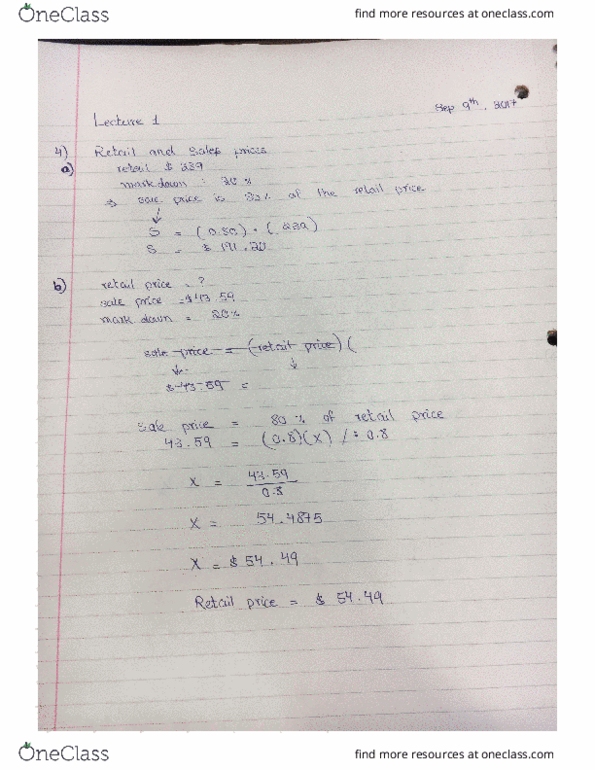 OneClass
find more resources at oneclass.com
Sep 9th, 2017
Lecture 1
4) Retail and Sales prices
a) retail $ 239
mark down : 20 %
⇒ sale price is 80% of the retail price
↓
S = (0.80) · (239)
S = $ 191.20
b) retail price = ?
sale price = $43.59
mark down = 20%
sale price = (retail price) (
↓ ↓
$ 43.59 =
sale price = 80 % of retail price
43.59 = (0.8)(x) / : 0.8
x = 43.59
0.8
x = 54.4875
x = $ 54.49
Retail price = $ 54.49
OneClass
find more resources at oneclass.com